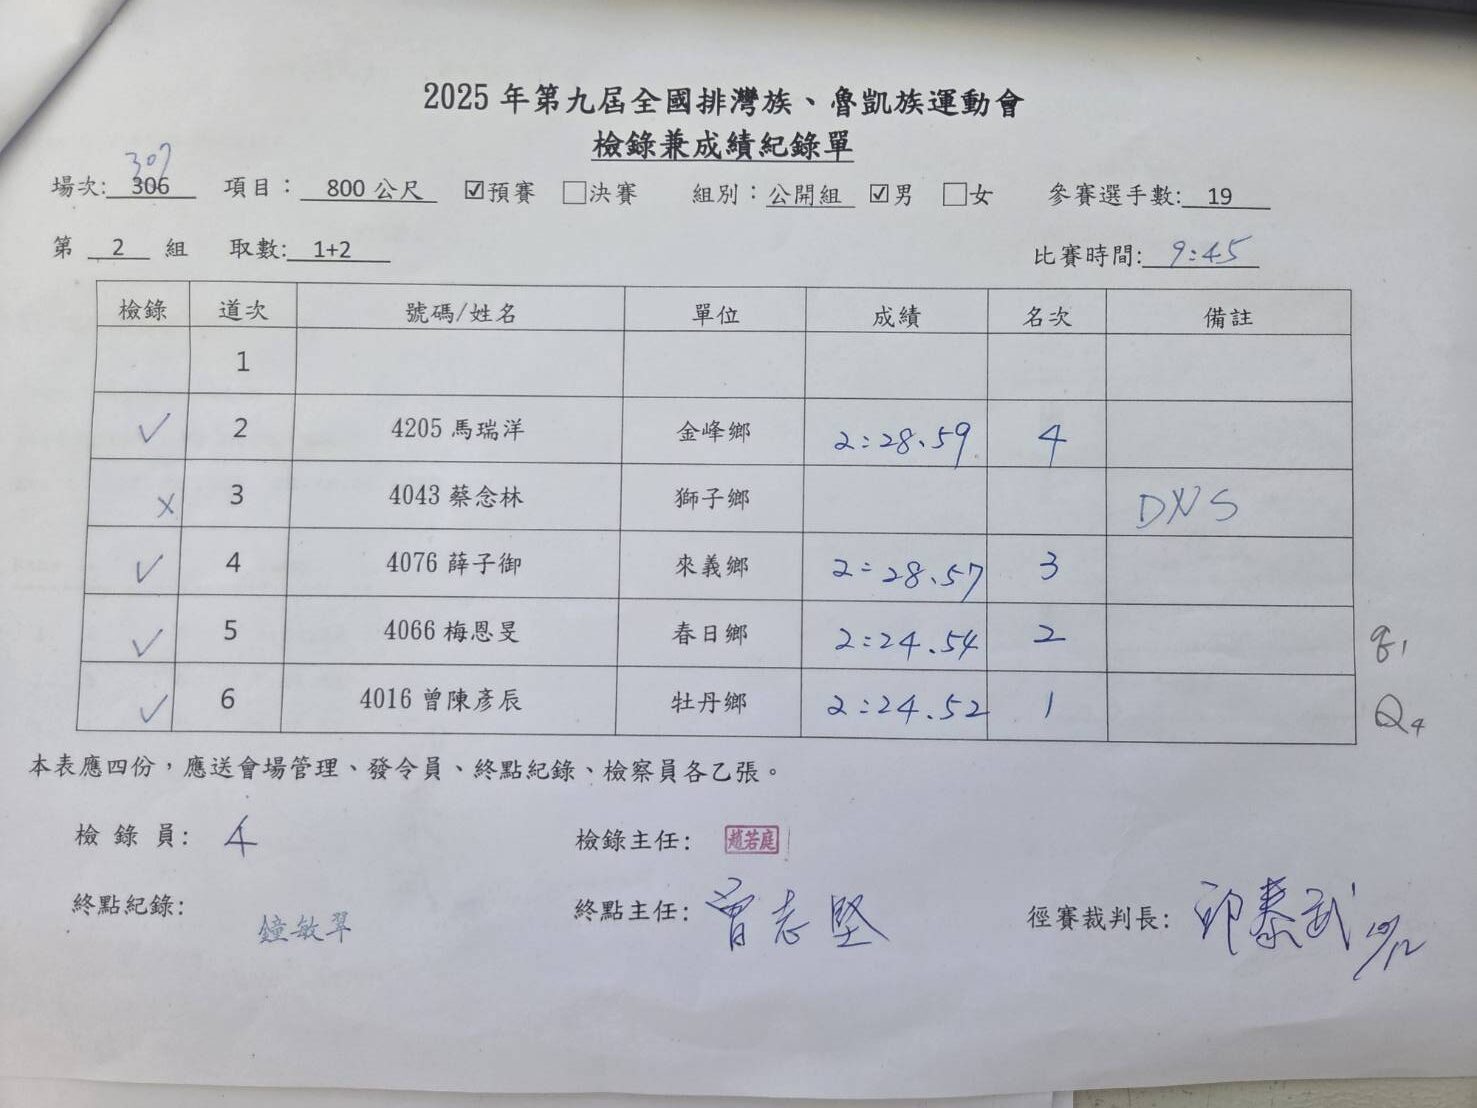 2025 年第九屆全國排灣族、魯凱族運動會
檢錄兼成績紀錄單
307
場次: 306 項目： 800 公尺 ☑預賽 □決賽 組別：公開組 ☑男 □女 參賽選手數: 19
第 2 組 取數: 1+2 比賽時間: 9:45
檢錄 道次 號碼/姓名 單位 成績 名次 備註
1
✓ 2 4205 馬瑞洋 金峰鄉 2:28.59 4
x 3 4043 蔡念林 獅子鄉 DNS
✓ 4 4076 薛子御 來義鄉 2:28.57 3
✓ 5 4066 梅恩旻 春日鄉 2:24.54 2 q1
✓ 6 4016 曾陳彥辰 牡丹鄉 2:24.52 1 Q4
本表應四份，應送會場管理、發令員、終點紀錄、檢察員各乙張。
檢 錄 員: 檢錄主任: 趙若庭
終點紀錄: 鐘敏翠 終點主任: 曾志堅 徑賽裁判長: 邱泰武 10/12